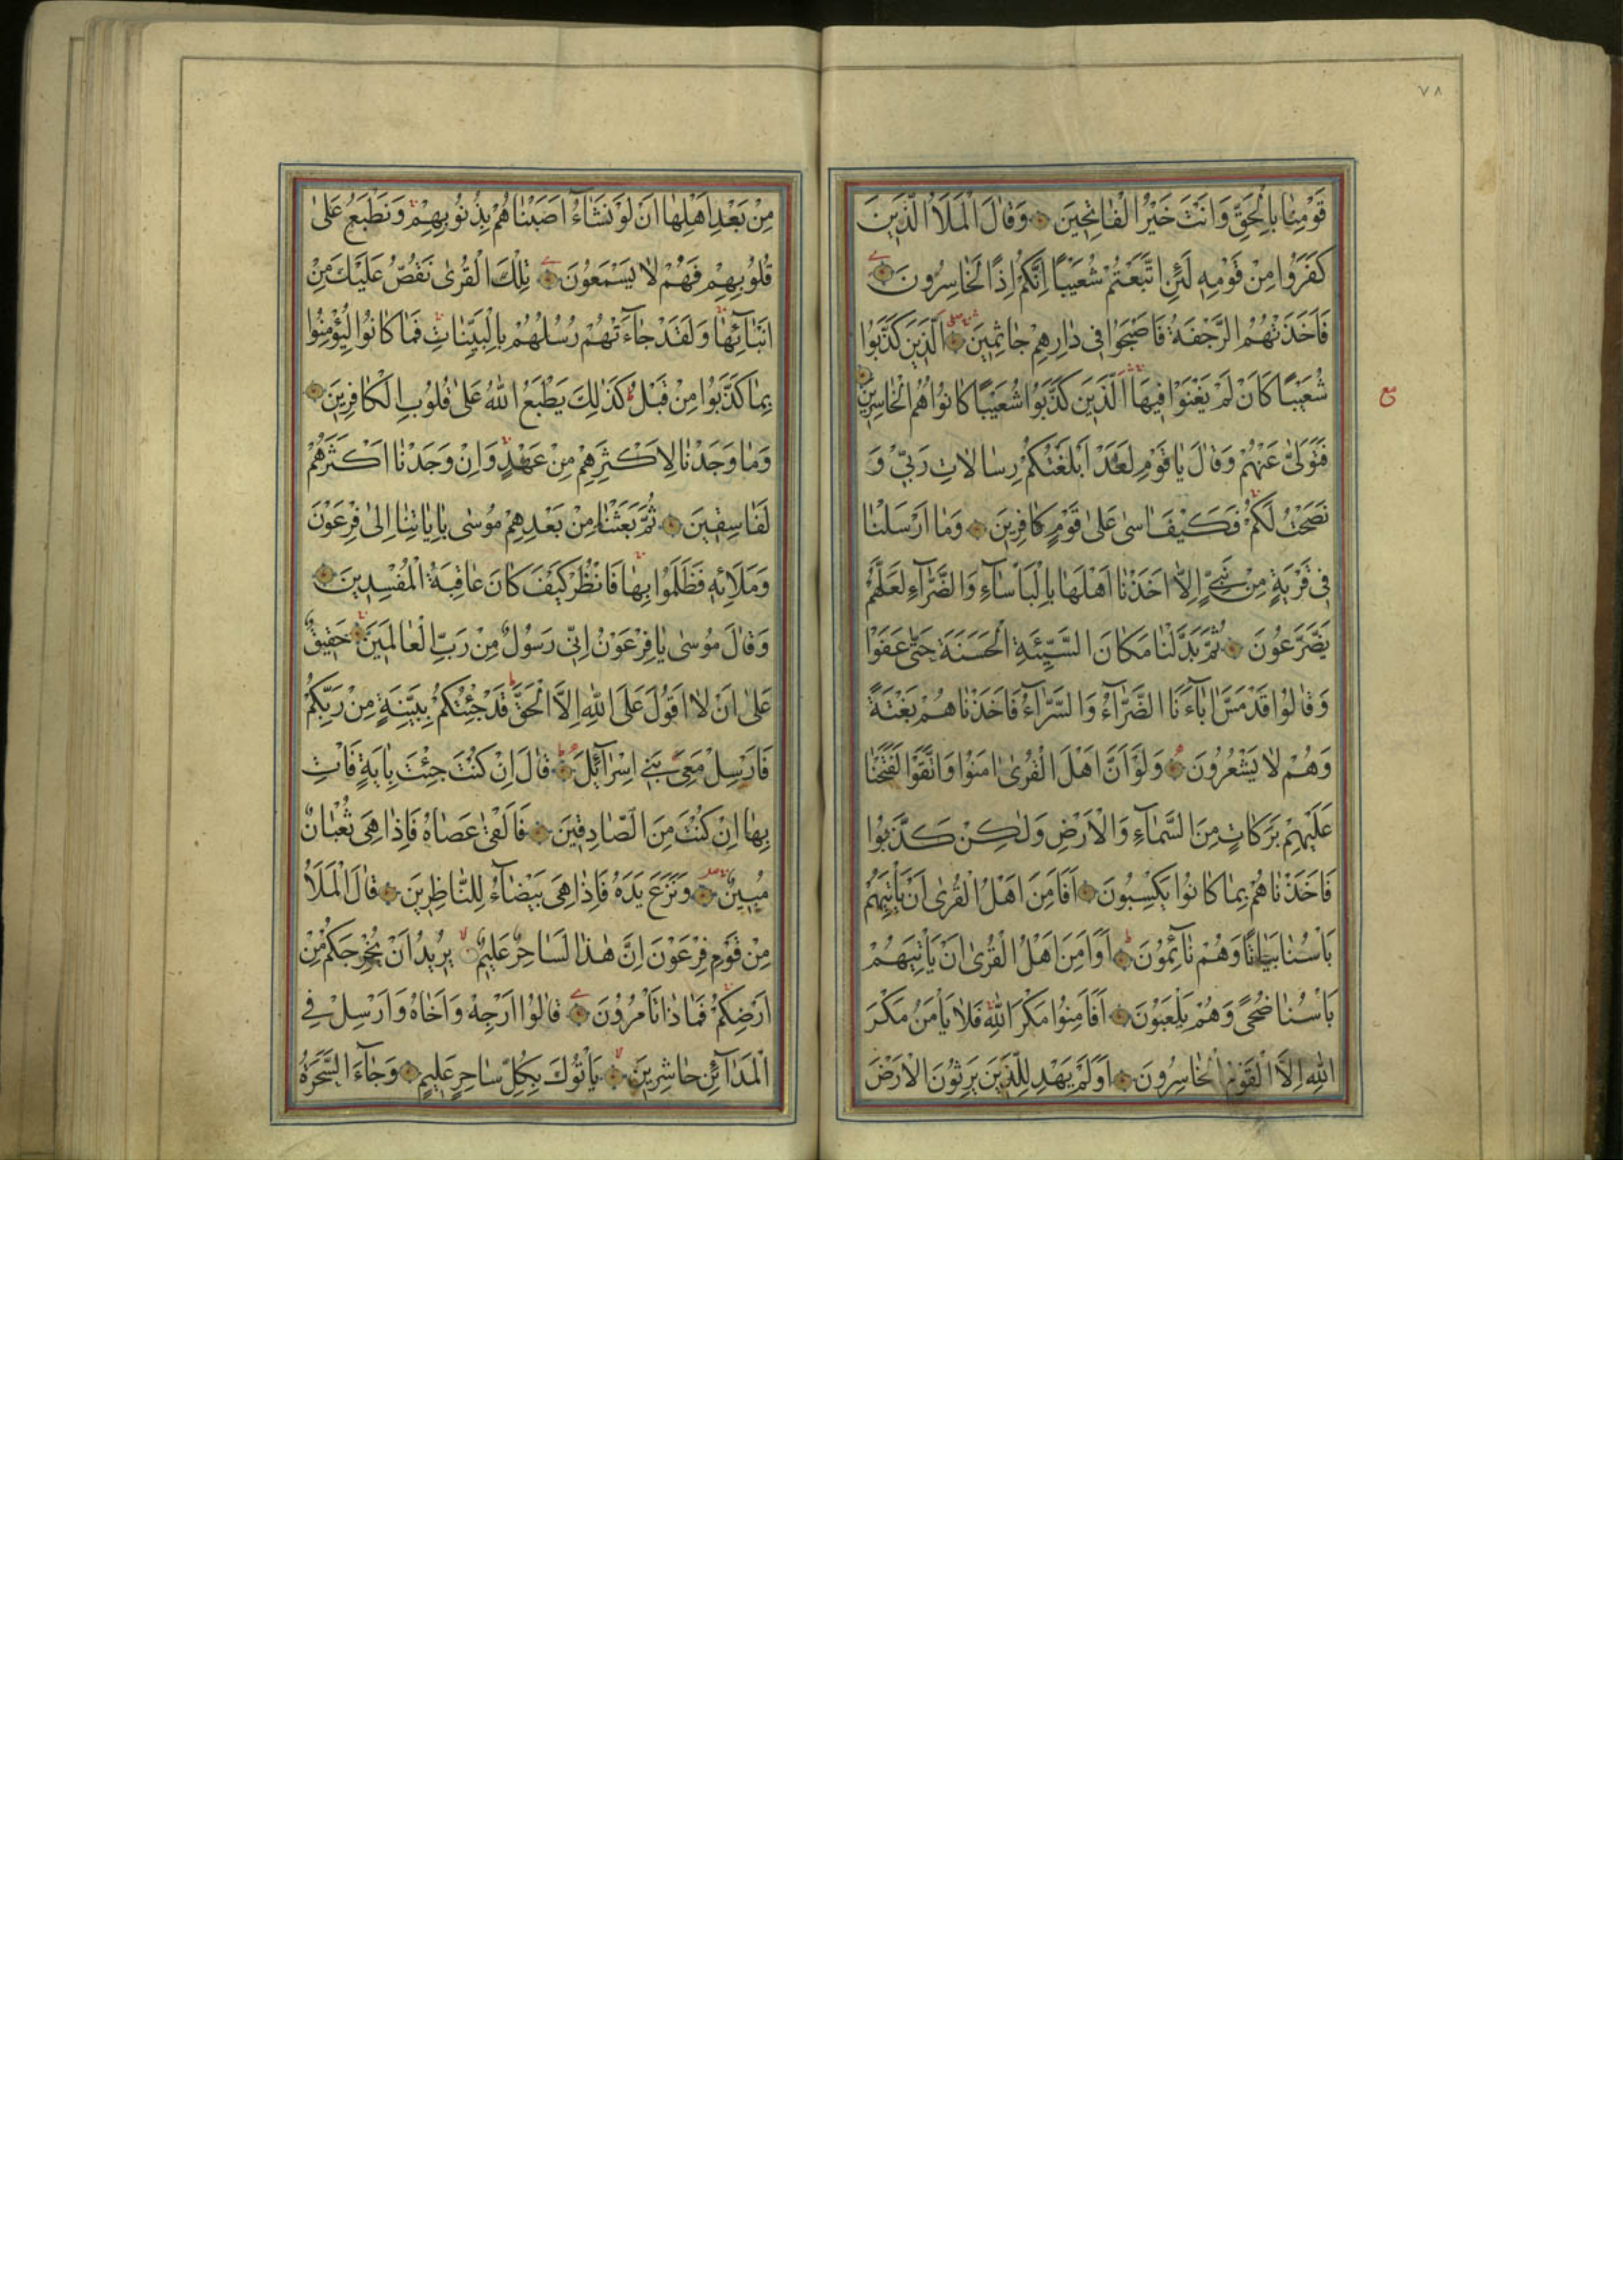 ٧٨
قَوْمِنَا بِالْحَقِّ وَاَنْتَ خَيْرُ الْفَاتِحِينَ وَقَالَ الْمَلَأُ الَّذِينَ
كَفَرُوا مِنْ قَوْمِهِ لَئِنِ اتَّبَعْتُمْ شُعَيْبًا اِنَّكُمْ اِذًا لَخَاسِرُونَ
فَاَخَذَتْهُمُ الرَّجْفَةُ فَاَصْبَحُوا فِى دَارِهِمْ جَاثِمِينَ اَلَّذِينَ كَذَّبُوا
شُعَيْبًا كَاَنْ لَمْ يَغْنَوْا فِيهَا اَلَّذِينَ كَذَّبُوا شُعَيْبًا كَانُوا هُمُ الْخَاسِرِينَ
ع
فَتَوَلَّى عَنْهُمْ وَقَالَ يَا قَوْمِ لَقَدْ اَبْلَغْتُكُمْ رِسَالَاتِ رَبِّى وَ
نَصَحْتُ لَكُمْ فَكَيْفَ اٰسٰى عَلٰى قَوْمٍ كَافِرِينَ وَمَا اَرْسَلْنَا
فِى قَرْيَةٍ مِنْ نَبِىٍّ اِلَّا اَخَذْنَا اَهْلَهَا بِالْبَأْسَاءِ وَالضَّرَّاءِ لَعَلَّهُمْ
يَضَّرَّعُونَ ثُمَّ بَدَّلْنَا مَكَانَ السَّيِّئَةِ الْحَسَنَةَ حَتَّى عَفَوْا
وَقَالُوا قَدْ مَسَّ اٰبَاءَنَا الضَّرَّاءُ وَالسَّرَّاءُ فَاَخَذْنَاهُمْ بَغْتَةً
وَهُمْ لَا يَشْعُرُونَ وَلَوْ اَنَّ اَهْلَ الْقُرٰى اٰمَنُوا وَاتَّقَوْا لَفَتَحْنَا
عَلَيْهِمْ بَرَكَاتٍ مِنَ السَّمَاءِ وَالْاَرْضِ وَلٰكِنْ كَذَّبُوا
فَاَخَذْنَاهُمْ بِمَا كَانُوا يَكْسِبُونَ اَفَاَمِنَ اَهْلُ الْقُرٰى اَنْ يَأْتِيَهُمْ
بَأْسُنَا بَيَاتًا وَهُمْ نَائِمُونَ اَوَاَمِنَ اَهْلُ الْقُرٰى اَنْ يَأْتِيَهُمْ
بَأْسُنَا ضُحًى وَهُمْ يَلْعَبُونَ اَفَاَمِنُوا مَكْرَ اللهِ فَلَا يَأْمَنُ مَكْرَ
اللهِ اِلَّا الْقَوْمُ الْخَاسِرُونَ اَوَلَمْ يَهْدِ لِلَّذِينَ يَرِثُونَ الْاَرْضَ
مِنْ بَعْدِ اَهْلِهَا اَنْ لَوْ نَشَاءُ اَصَبْنَاهُمْ بِذُنُوبِهِمْ وَنَطْبَعُ عَلٰى
قُلُوبِهِمْ فَهُمْ لَا يَسْمَعُونَ تِلْكَ الْقُرٰى نَقُصُّ عَلَيْكَ مِنْ
اَنْبَائِهَا وَلَقَدْ جَاءَتْهُمْ رُسُلُهُمْ بِالْبَيِّنَاتِ فَمَا كَانُوا لِيُؤْمِنُوا
بِمَا كَذَّبُوا مِنْ قَبْلُ كَذٰلِكَ يَطْبَعُ اللهُ عَلٰى قُلُوبِ الْكَافِرِينَ
وَمَا وَجَدْنَا لِاَكْثَرِهِمْ مِنْ عَهْدٍ وَاِنْ وَجَدْنَا اَكْثَرَهُمْ
لَفَاسِقِينَ ثُمَّ بَعَثْنَا مِنْ بَعْدِهِمْ مُوسٰى بِاٰيَاتِنَا اِلٰى فِرْعَوْنَ
وَمَلَائِهِ فَظَلَمُوا بِهَا فَانْظُرْ كَيْفَ كَانَ عَاقِبَةُ الْمُفْسِدِينَ
وَقَالَ مُوسٰى يَا فِرْعَوْنُ اِنِّى رَسُولٌ مِنْ رَبِّ الْعَالَمِينَ حَقِيقٌ
عَلٰى اَنْ لَا اَقُولَ عَلَى اللهِ اِلَّا الْحَقَّ قَدْ جِئْتُكُمْ بِبَيِّنَةٍ مِنْ رَبِّكُمْ
فَاَرْسِلْ مَعِىَ بَنِى اِسْرَائِلَ قَالَ اِنْ كُنْتَ جِئْتَ بِاٰيَةٍ فَأْتِ
بِهَا اِنْ كُنْتَ مِنَ الصَّادِقِينَ فَاَلْقٰى عَصَاهُ فَاِذَا هِىَ ثُعْبَانٌ
مُبِينٌ وَنَزَعَ يَدَهُ فَاِذَا هِىَ بَيْضَاءُ لِلنَّاظِرِينَ قَالَ الْمَلَأُ
مِنْ قَوْمِ فِرْعَوْنَ اِنَّ هٰذَا لَسَاحِرٌ عَلِيمٌ يُرِيدُ اَنْ يُخْرِجَكُمْ مِنْ
اَرْضِكُمْ فَمَاذَا تَأْمُرُونَ قَالُوا اَرْجِهْ وَاَخَاهُ وَاَرْسِلْ فِى
الْمَدَائِنِ حَاشِرِينَ يَأْتُوكَ بِكُلِّ سَاحِرٍ عَلِيمٍ وَجَاءَ السَّحَرَةُ